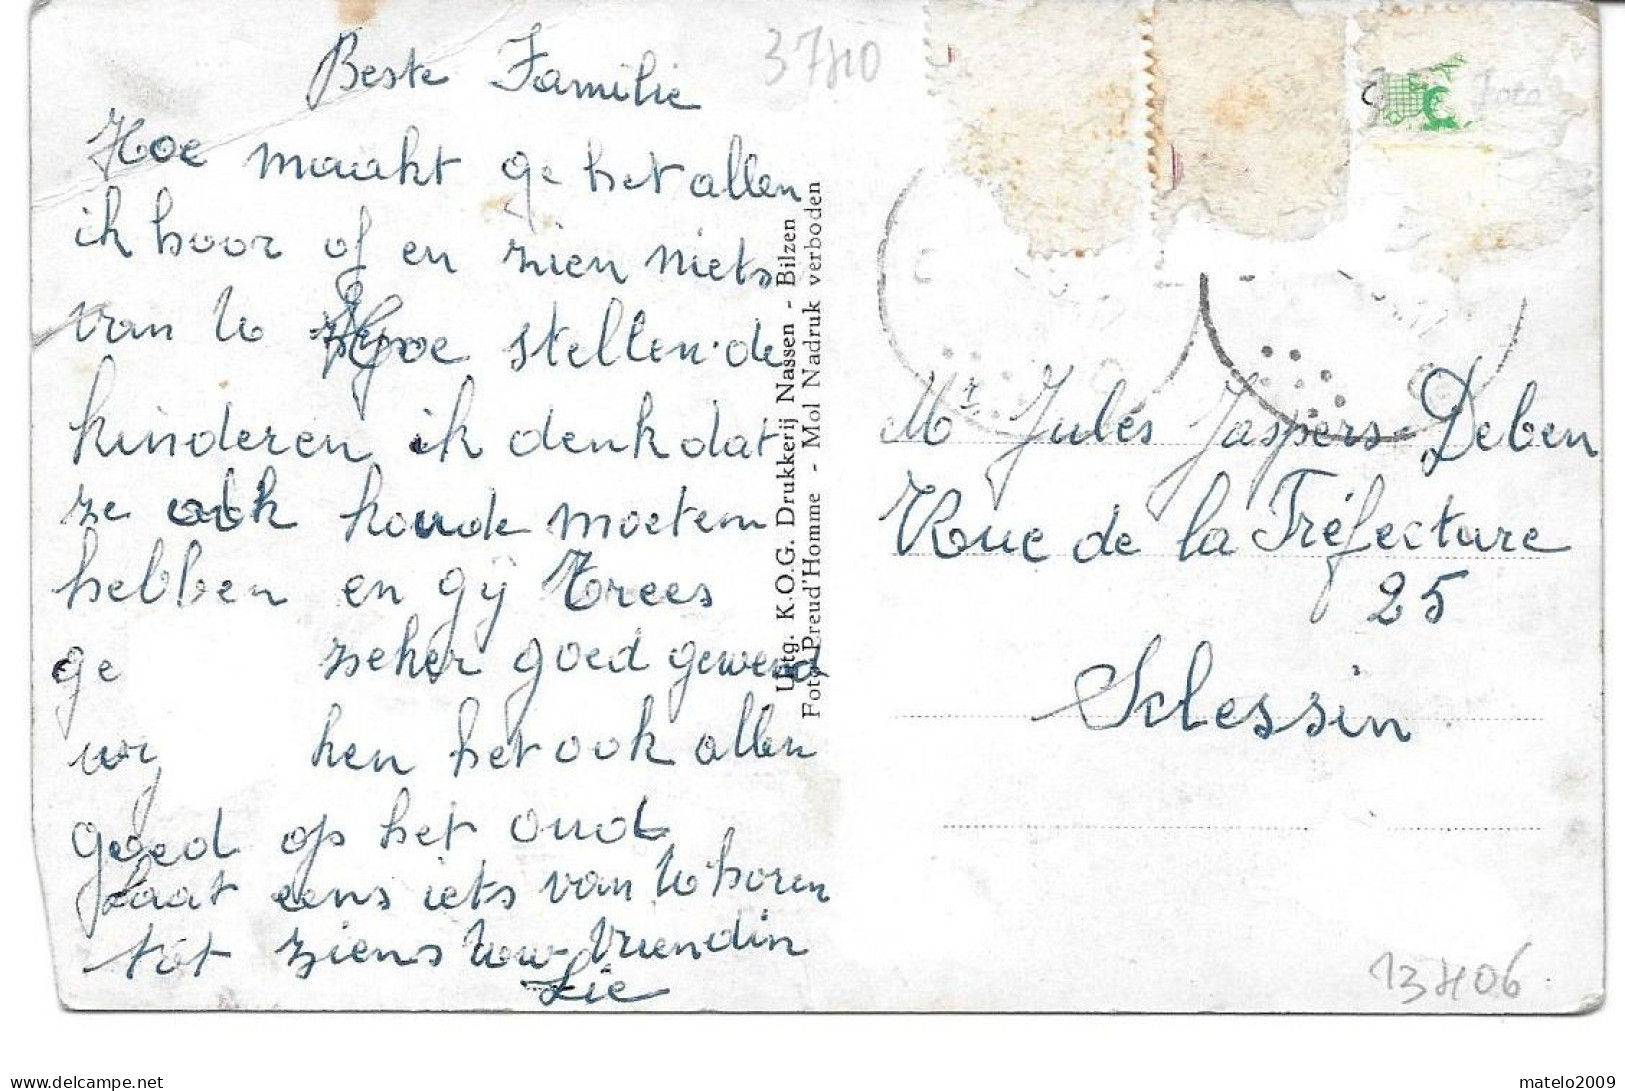 Beste Familie
Hoe maakt ge het allen
ik hoor of en zien niets
van U Hoe stellen de
kinderen ik denk dat
ze ook koude moeten
hebben en gij Trees
ge zeker goed gewend
hen het ook allen
goed op het oude
Laat eens iets van U horen
tot ziens Uw Vriendin
Lie
3740
Uitg. K.O.G. Drukkerij Nassen - Bilzen
Foto Preud'Homme - Mol Nadruk verboden
Foto
Mr Jules Jaspers-Deben
Rue de la Préfecture
25
Sclessin
13406
https://www.delcampe.net
matelo2009